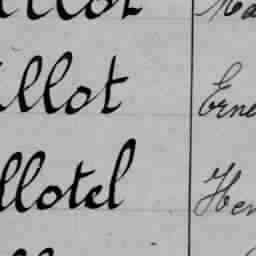 llot Ma
illot Erne
llotel Hen